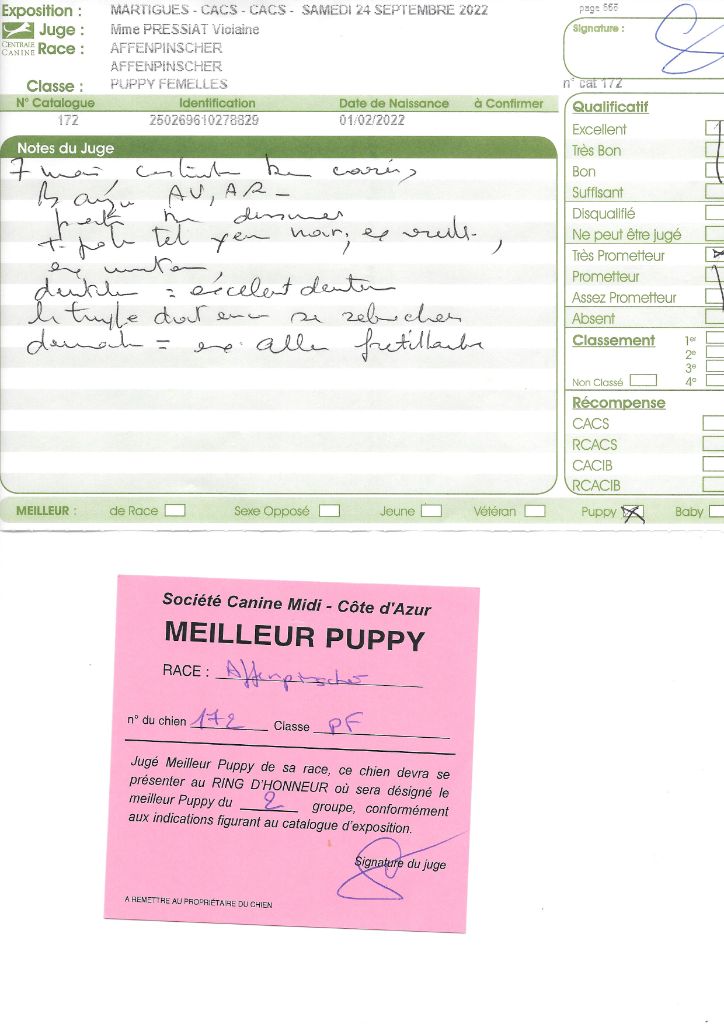 Exposition : MARTIGUES - CACS - CACS - SAMEDI 24 SEPTEMBRE 2022
page 566
Juge : Mme PRESSIAT Violaine
Signature :
CENTRALE CANINE
Race : AFFENPINSCHER
AFFENPINSCHER
Classe : PUPPY FEMELLES
n° cat 172
N° Catalogue Identification Date de Naissance à Confirmer
172 250269610278829 01/02/2022
Notes du Juge
7 mois,
AV, AR -
tel yeux noir, ex
= excellent
la truffe doit encore se reboucher
= ex. allure frétillante
Qualificatif
Excellent
Très Bon
Bon
Suffisant
Disqualifié
Ne peut être jugé
Très Prometteur
Prometteur
Assez Prometteur
Absent
Classement 1er
2e
3e
Non Classé 4e
Récompense
CACS
RCACS
CACIB
RCACIB
MEILLEUR : de Race Sexe Opposé Jeune Vétéran Puppy Baby
Société Canine Midi - Côte d'Azur
MEILLEUR PUPPY
RACE : Affenpinscher
n° du chien 172 Classe PF
Jugé Meilleur Puppy de sa race, ce chien devra se
présenter au RING D'HONNEUR où sera désigné le
meilleur Puppy du 2 groupe, conformément
aux indications figurant au catalogue d'exposition.
Signature du juge
A REMETTRE AU PROPRIÉTAIRE DU CHIEN